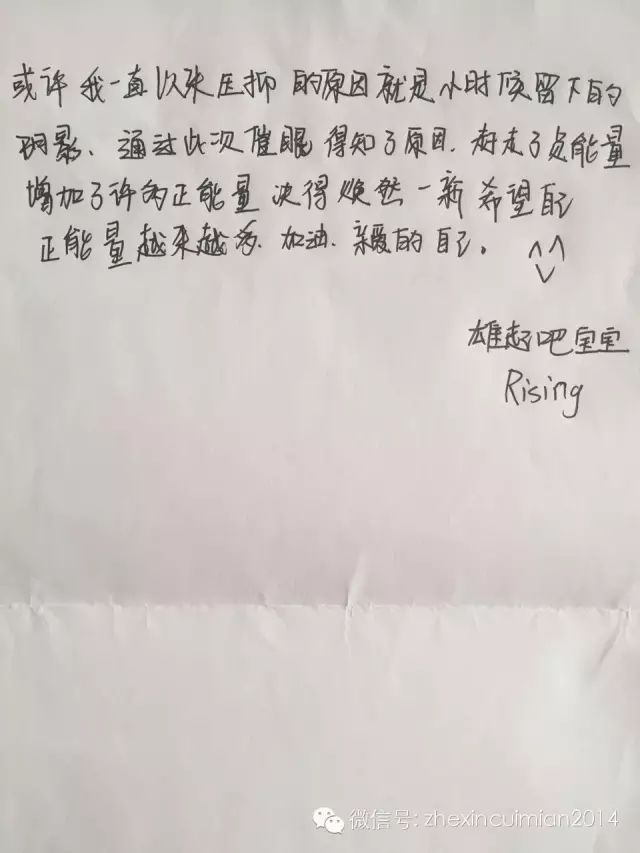 或许我一直以来压抑的原因就是小时候留下的
阴影、通过此次催眠得知了原因.赶走了负能量
增加了许多正能量决得焕然一新希望自己
正能量越来越多.加油.亲爱的自己。^^
雄起吧宝宝
Rising
微信号: zhexincuimian2014